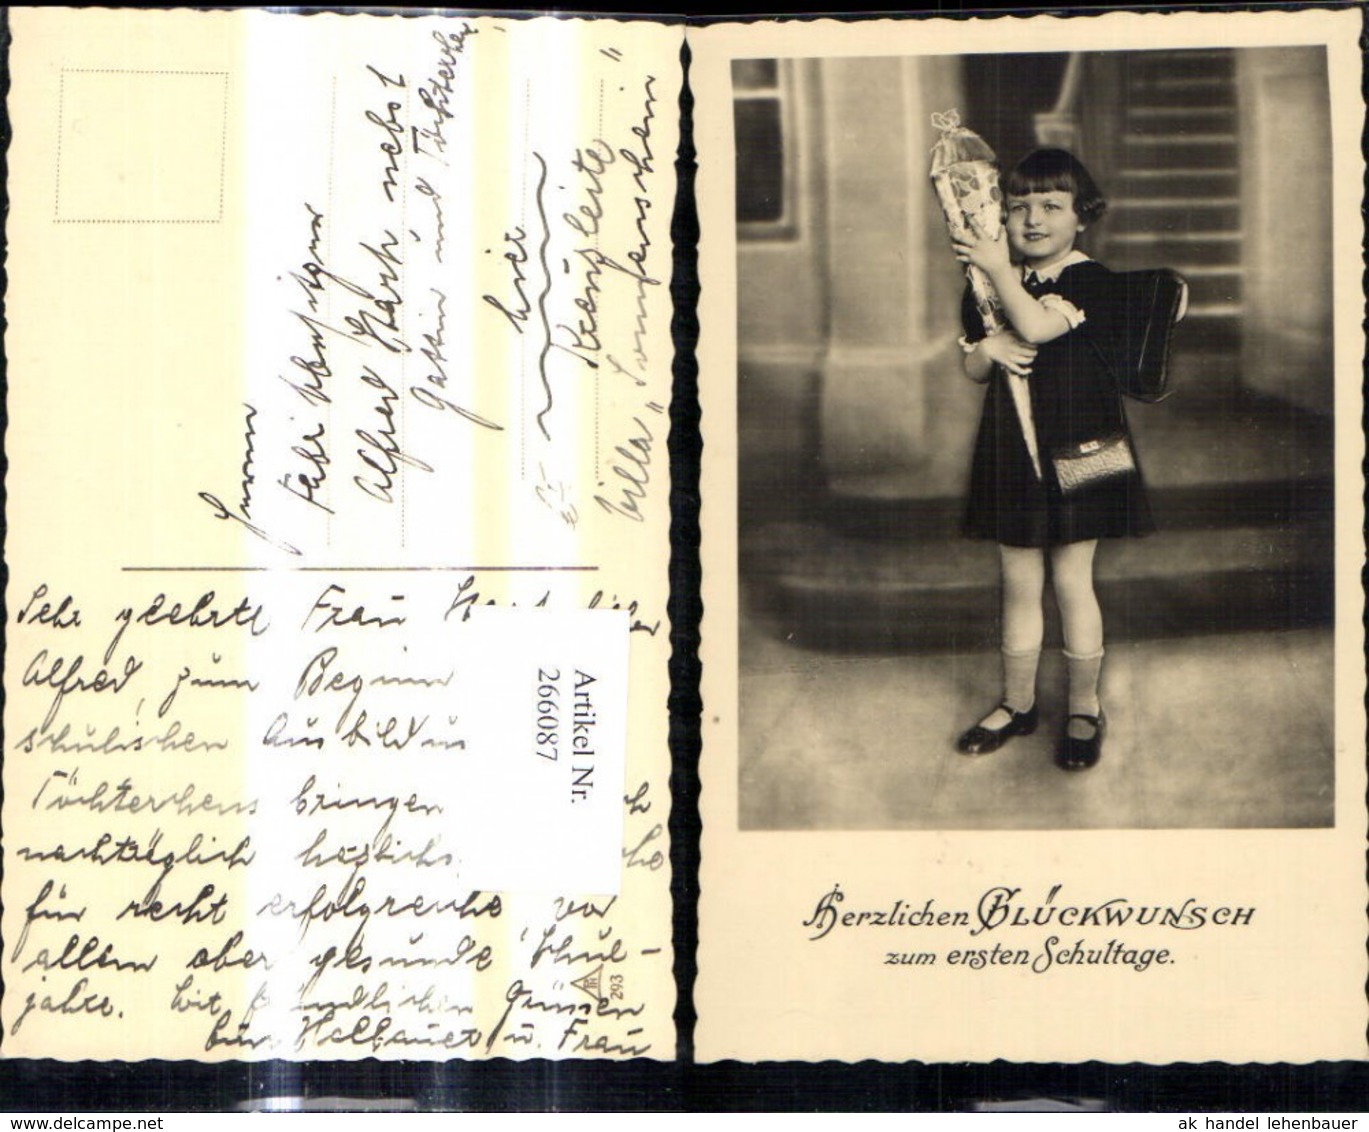 Herrn
Fabrikbesitzer
Alfred
nebst
Gattin und Töchterchen
hier
Villa "Sonnenschein"
Sehr geehrte Frau
Alfred, zum Beginn
schulischen Ausbildun
Töchterchens bringen
nachträglich
für recht erfolgreiche, vor
allem aber gesunde Schul-
jahre. Mit Grüssen
u. Frau
Artikel Nr.
266087
293
Herzlichen GLÜCKWUNSCH
zum ersten Schultage.
www.delcampe.net
ak handel lehenbauer